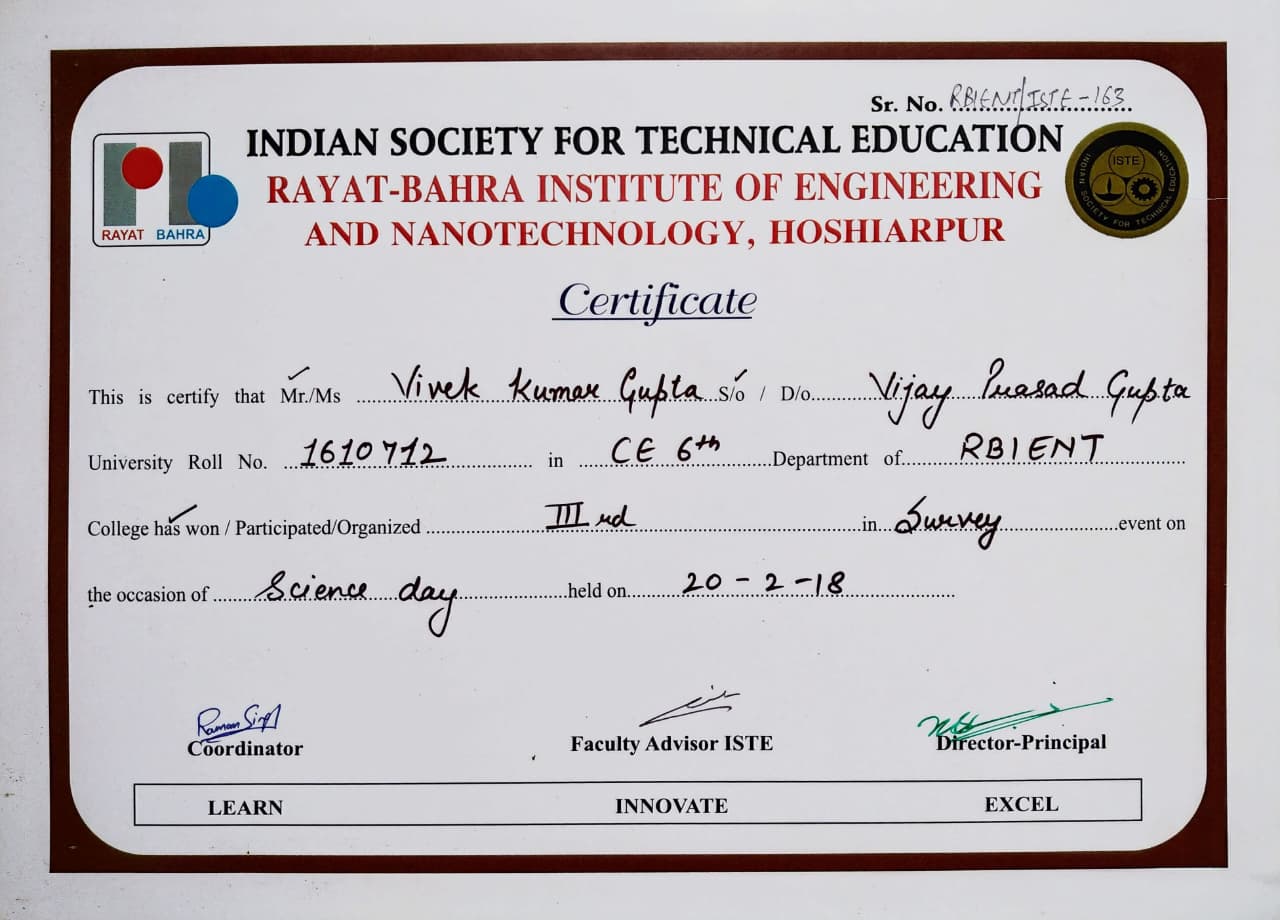 Sr. No. RBIENT/ISTE-163
INDIAN SOCIETY FOR TECHNICAL EDUCATION
RAYAT-BAHRA INSTITUTE OF ENGINEERING
AND NANOTECHNOLOGY, HOSHIARPUR
RAYAT BAHRA
ISTE
INDIAN SOCIETY FOR TECHNICAL EDUCATION
Certificate
This is certify that Mr./Ms Vivek Kumar Gupta S/o / D/o Vijay Prasad Gupta
University Roll No. 1610712 in CE 6th Department of RBIENT
College has won / Participated/Organized IIIrd in Survey event on
the occasion of Science day held on 20-2-18
Raman Singh
Coordinator Faculty Advisor ISTE Director-Principal
LEARN INNOVATE EXCEL